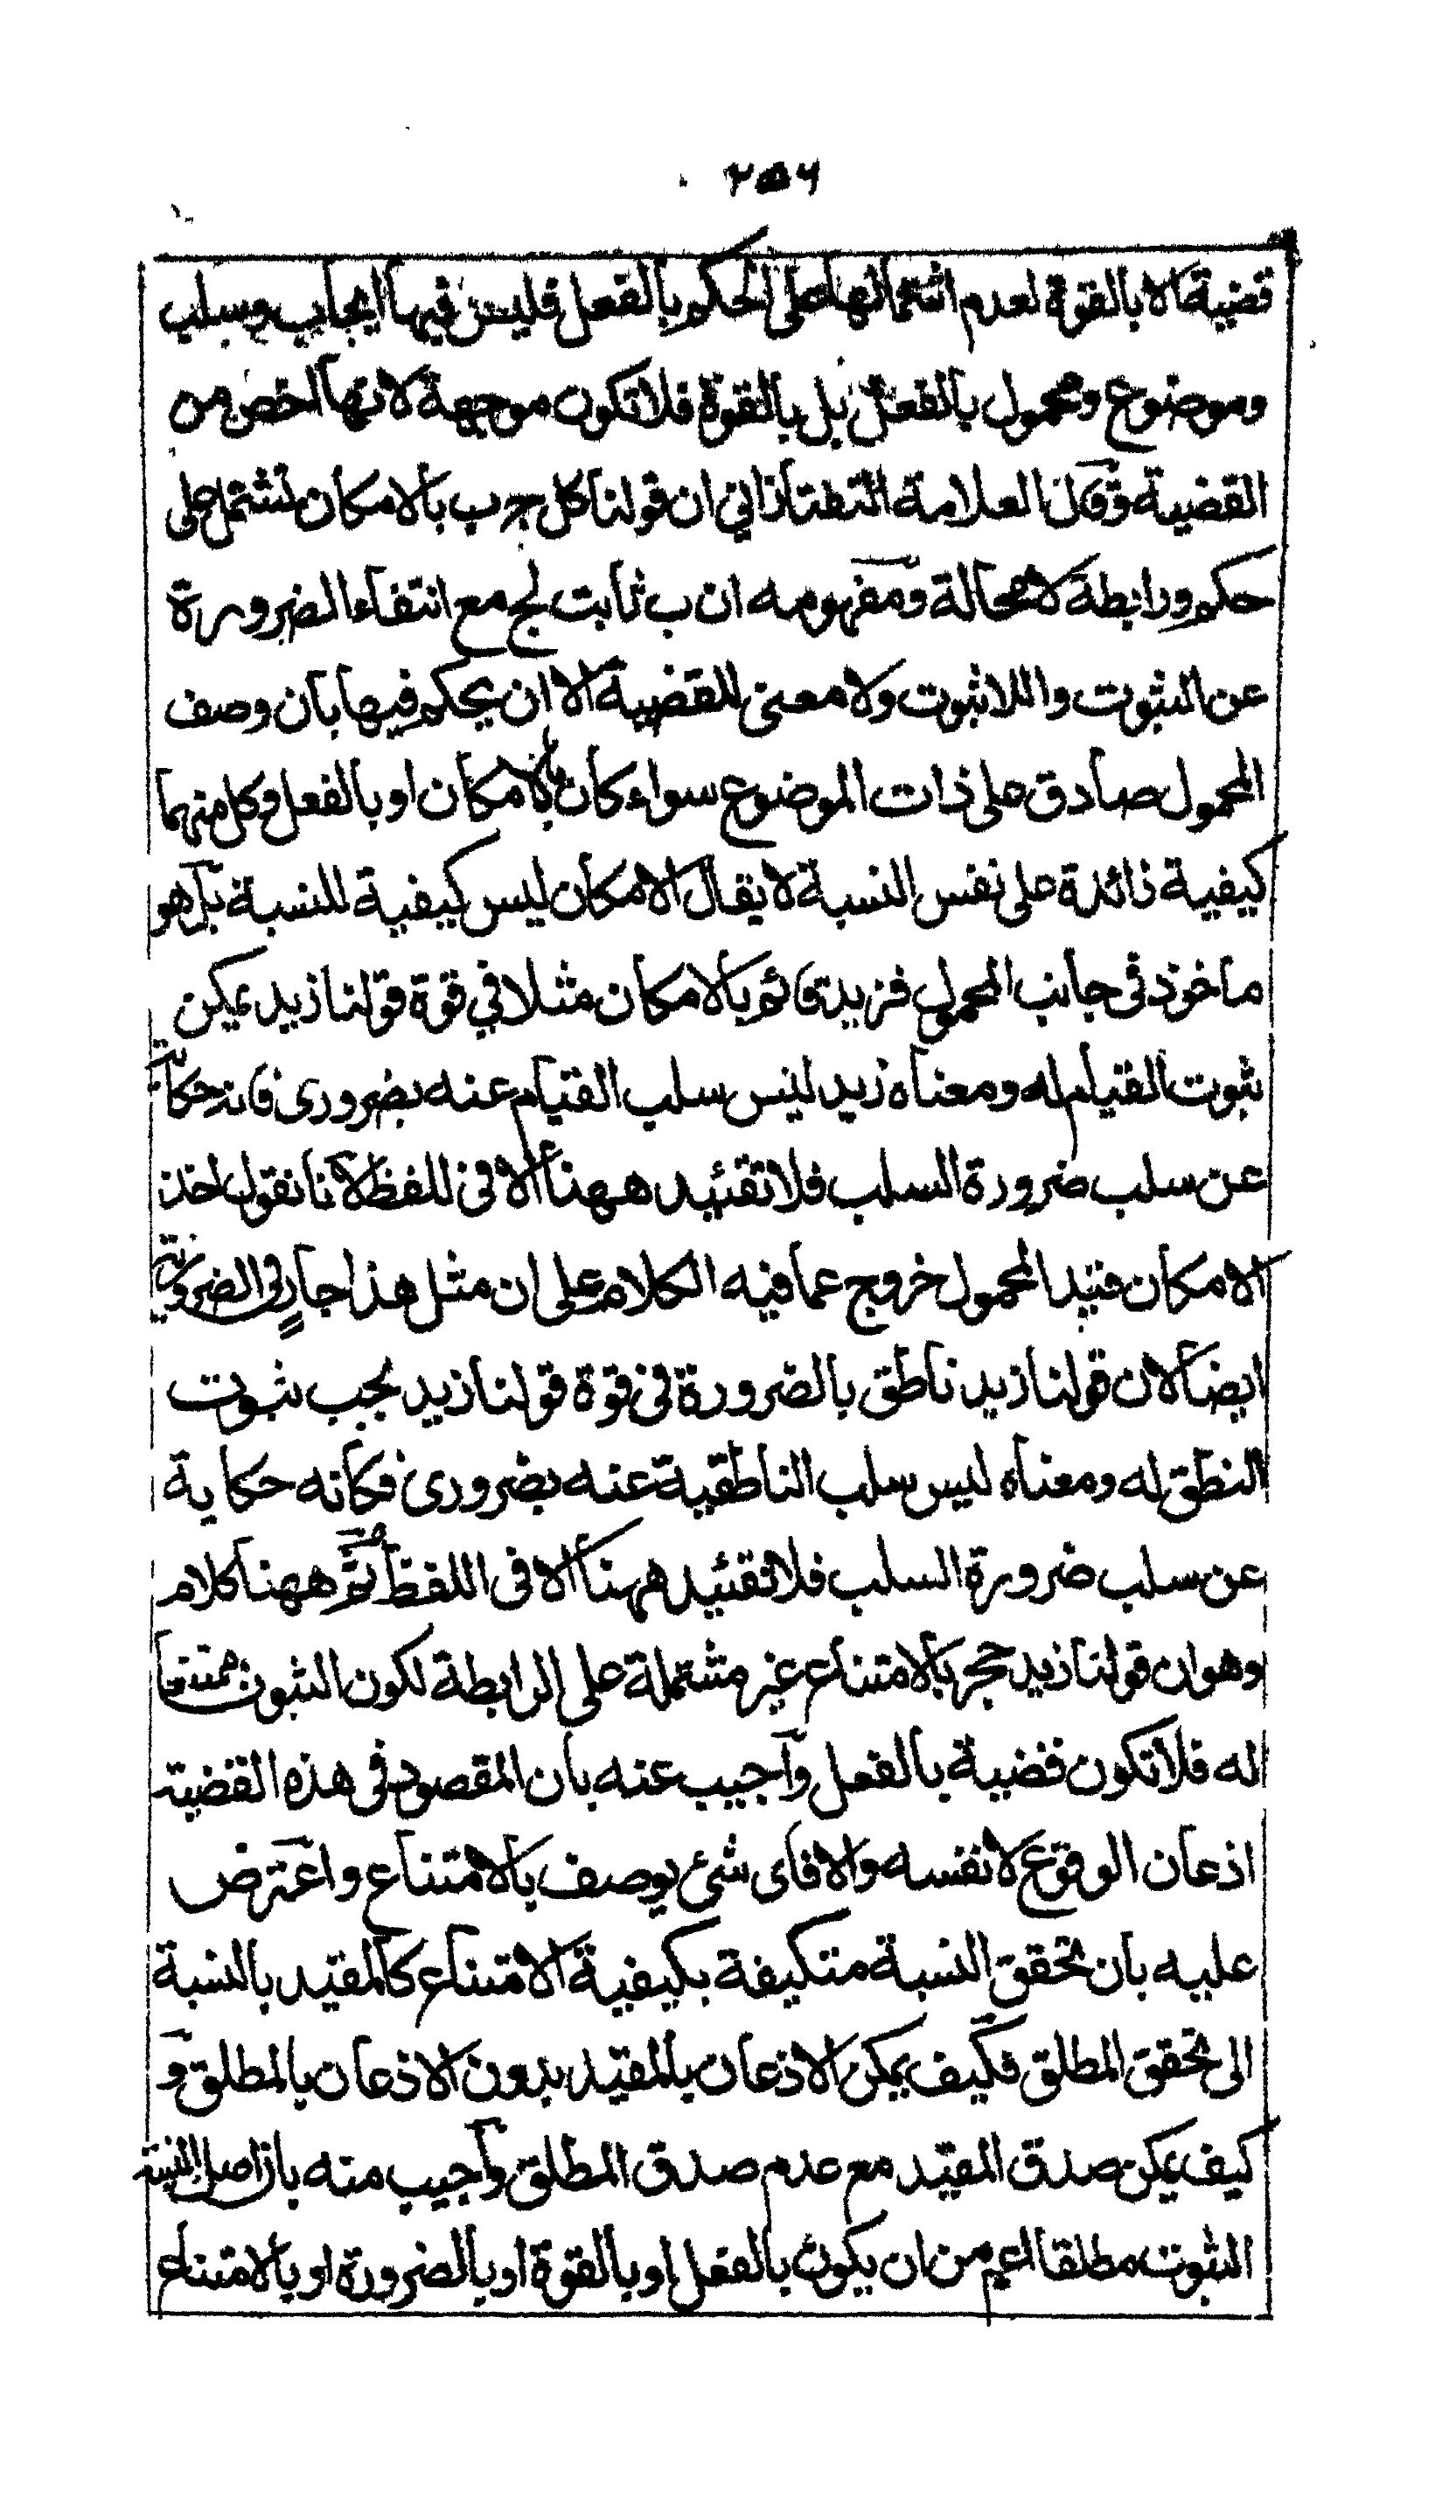 ٢٥٦
قضية الا بالقوة لعدم اشتمالها على الحكم بالفعل فليس فيها ايجاب وسلب
وموضوع ومحمول بالفعل بل بالقوة فلا تكون موجهة لانها اخص من
القضية وقال العلامة التفتازاني ان قولنا كل ج ب بالامكان تشتمل على
حكم ورابطة لا محالة ومفهومه ان ب ثابت لج مع انتفاء الضرورة
عن الثبوت واللاثبوت ولا معنى للقضية الا ان يحكم فيها بان وصف
المحمول صادق على ذات الموضوع سواء كان بالامكان او بالفعل وكل منهما
كيفية زائدة على نفس النسبة لا يقال الامكان ليس كيفية للنسبة بل هو
ماخوذ فى جانب المحمول فزيد قائم بالامكان مثلا في قوة قولنا زيد يمكن
ثبوت القيام له ومعناه زيد ليس سلب القيام عنه بضرورى فانه حكاية
عن سلب ضرورة السلب فلا تقئيد ههنا الا فى اللفظ لانا نقول اخذ
الامكان قيد المحمول خروج عما فيه الكلام على ان مثل هذا جار فى الضرورية
ايضا لان قولنا زيد ناطق بالضرورة فى قوة قولنا زيد يجب ثبوت
النطق له ومعناه ليس سلب الناطقية عنه بضرورى فكانه حكاية
عن سلب ضرورة السلب فلا تقئيد ههنا الا فى اللفظ ثم ههنا كلام
وهو ان قولنا زيد حجر بالامتناع غير مشتملة على الرابطة لكون الثبوت ممتنعا
له فلا تكون قضية بالفعل واجيب عنه بان المقصود فى هذه القضية
اذعان الوقوع لا نفسه والا فاى شئ يوصف بالامتناع واعترض
عليه بان تحقق النسبة متكيفة بكيفية الامتناع كالمقيد بالنسبة
الى تحقق المطلق فكيف يمكن الاذعان بالمقيد بدون الاذعان بالمطلق و
كيف يمكن صدق المقيد مع عدم صدق المطلق واجيب منه بان اصل النسبة
الثبوت مطلقا اعم من ان يكون بالفعل او بالقوة او بالضرورة او بالامتناع